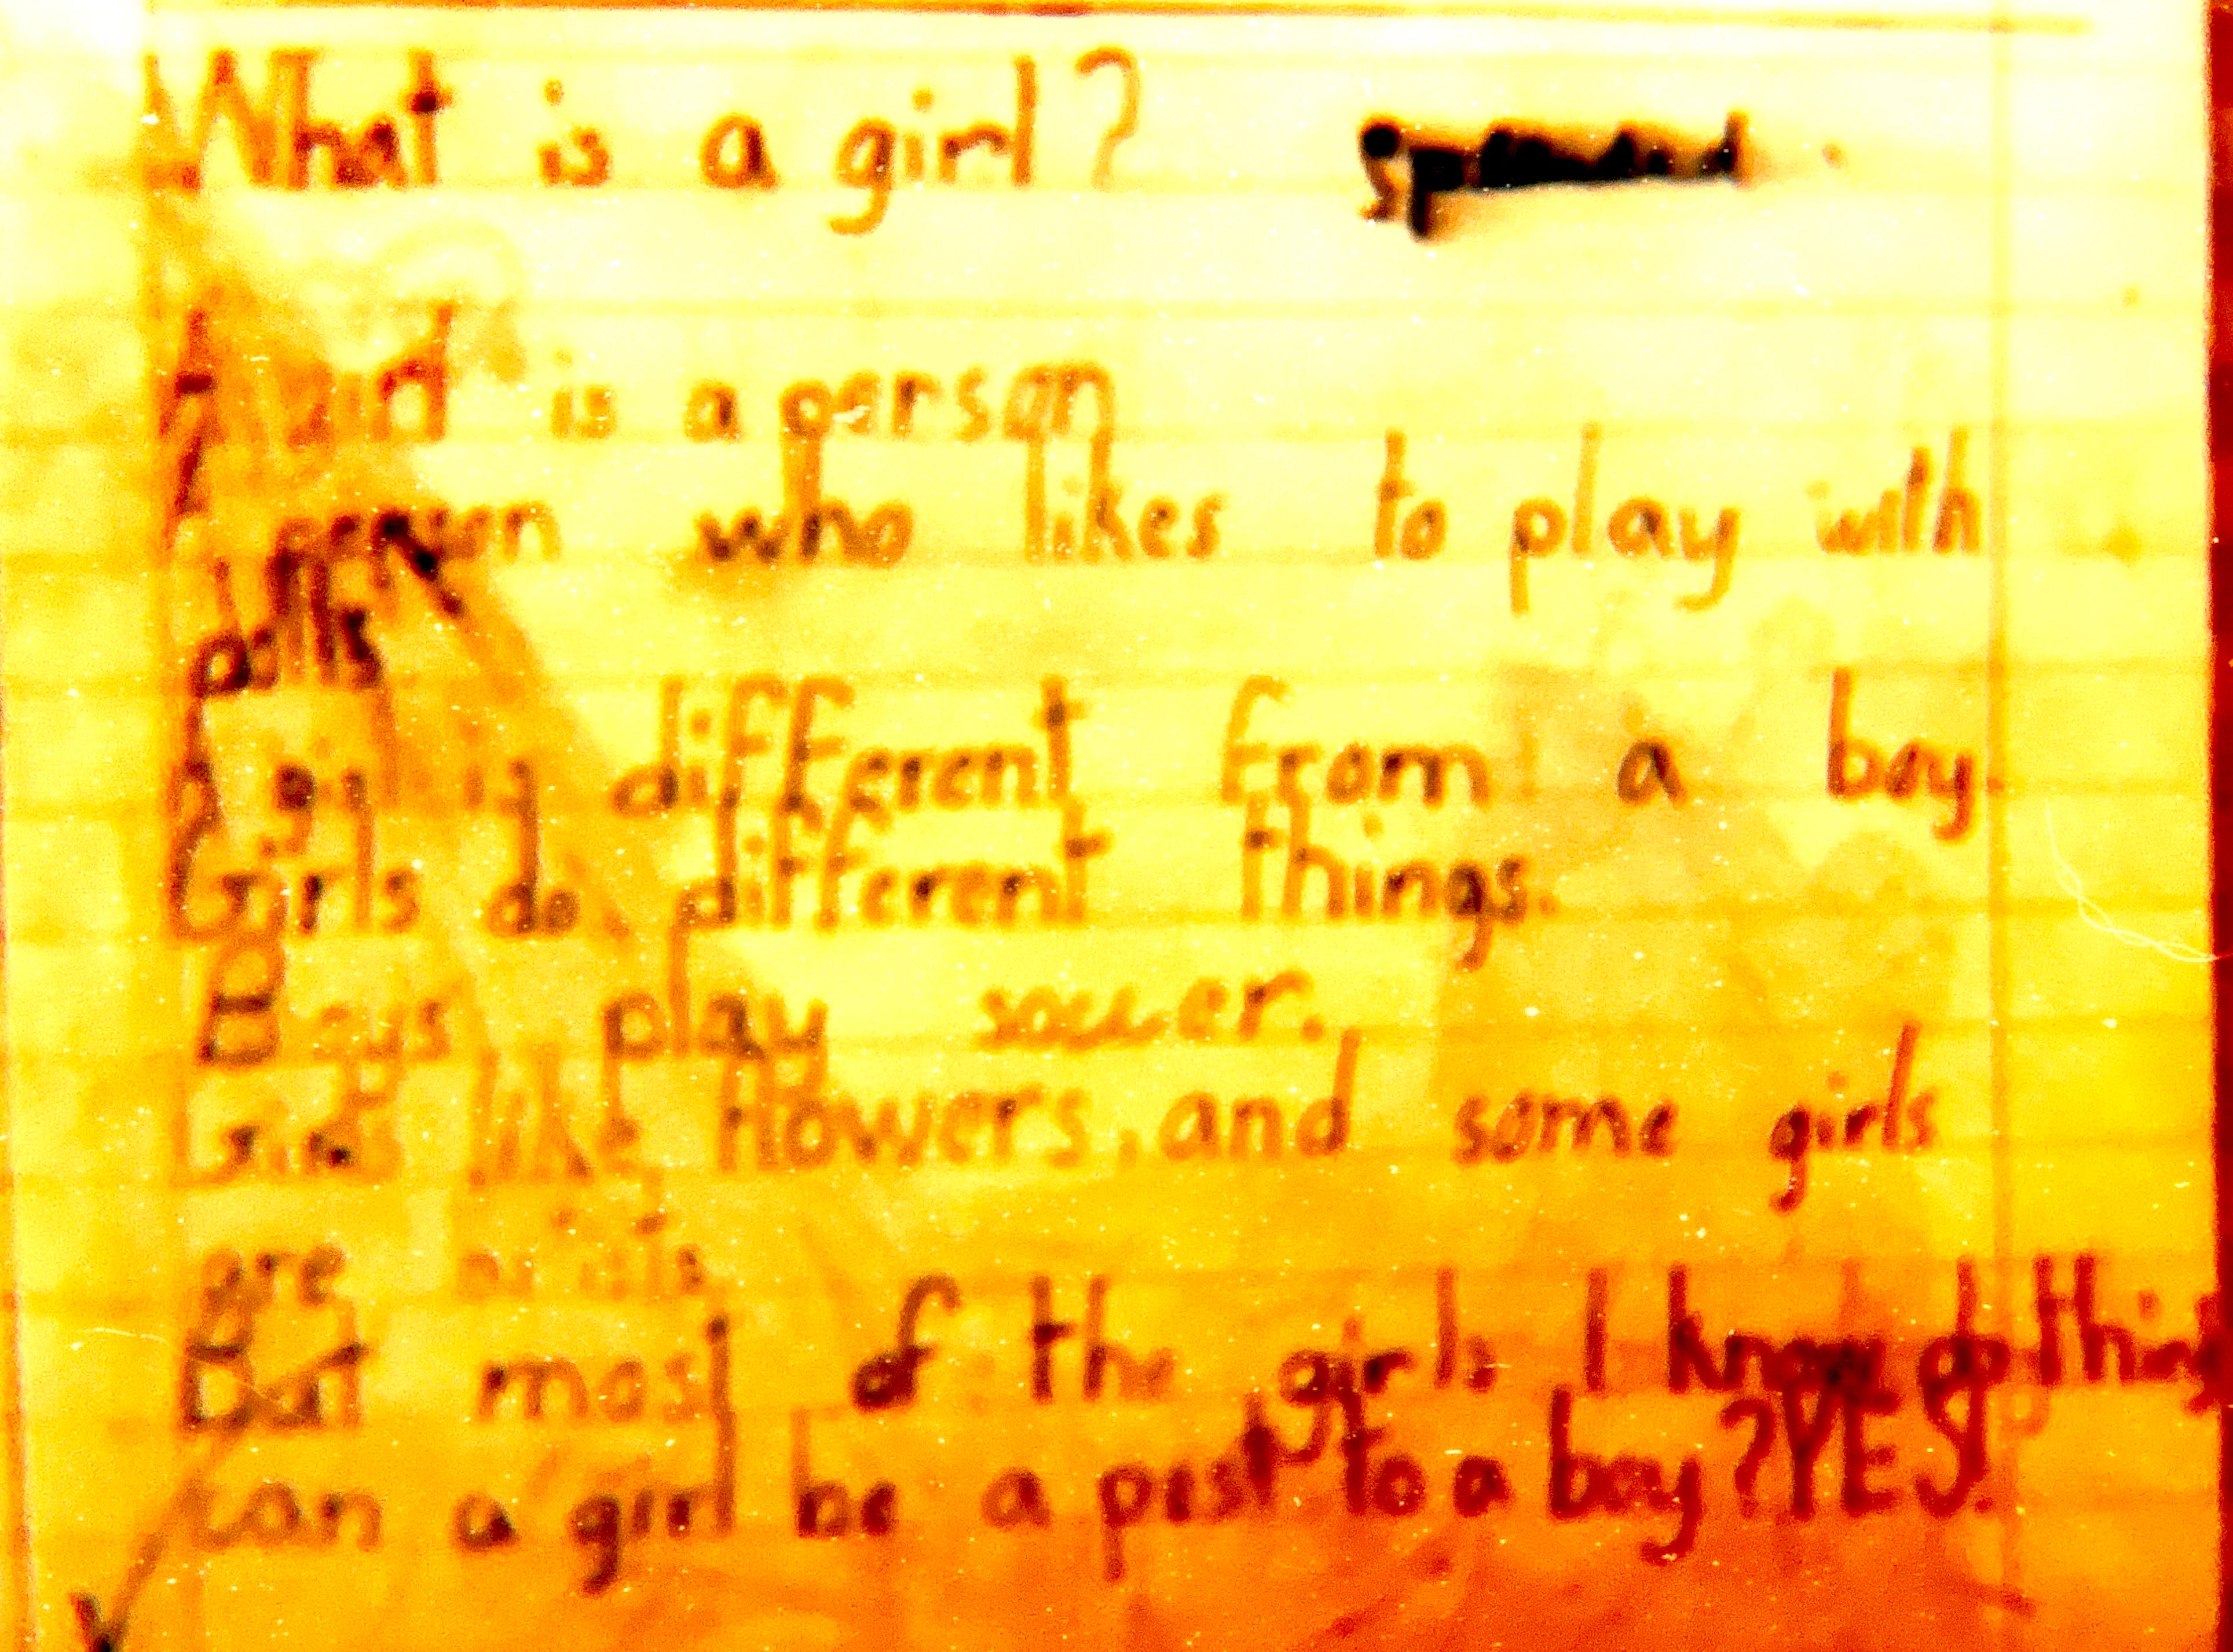 What is a girl?
A girl is a person
A person who likes to play with
dolls
A girl is different from a boy.
Girls do different things.
Boys play soccer.
Girls like flowers, and some girls
are
But most of the girls I know do thing
can a girl be a pest to a boy? YES!